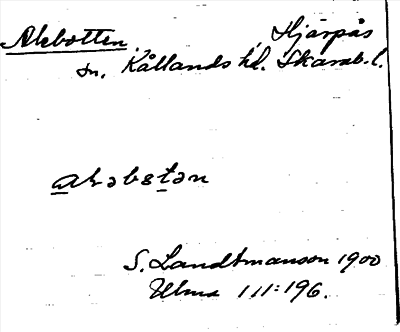 Akbotten, Hjärpås
sn. Kållands hd. Skarab. l.
akəbstən
S. Landtmanson 1900
Ulma 111:196.